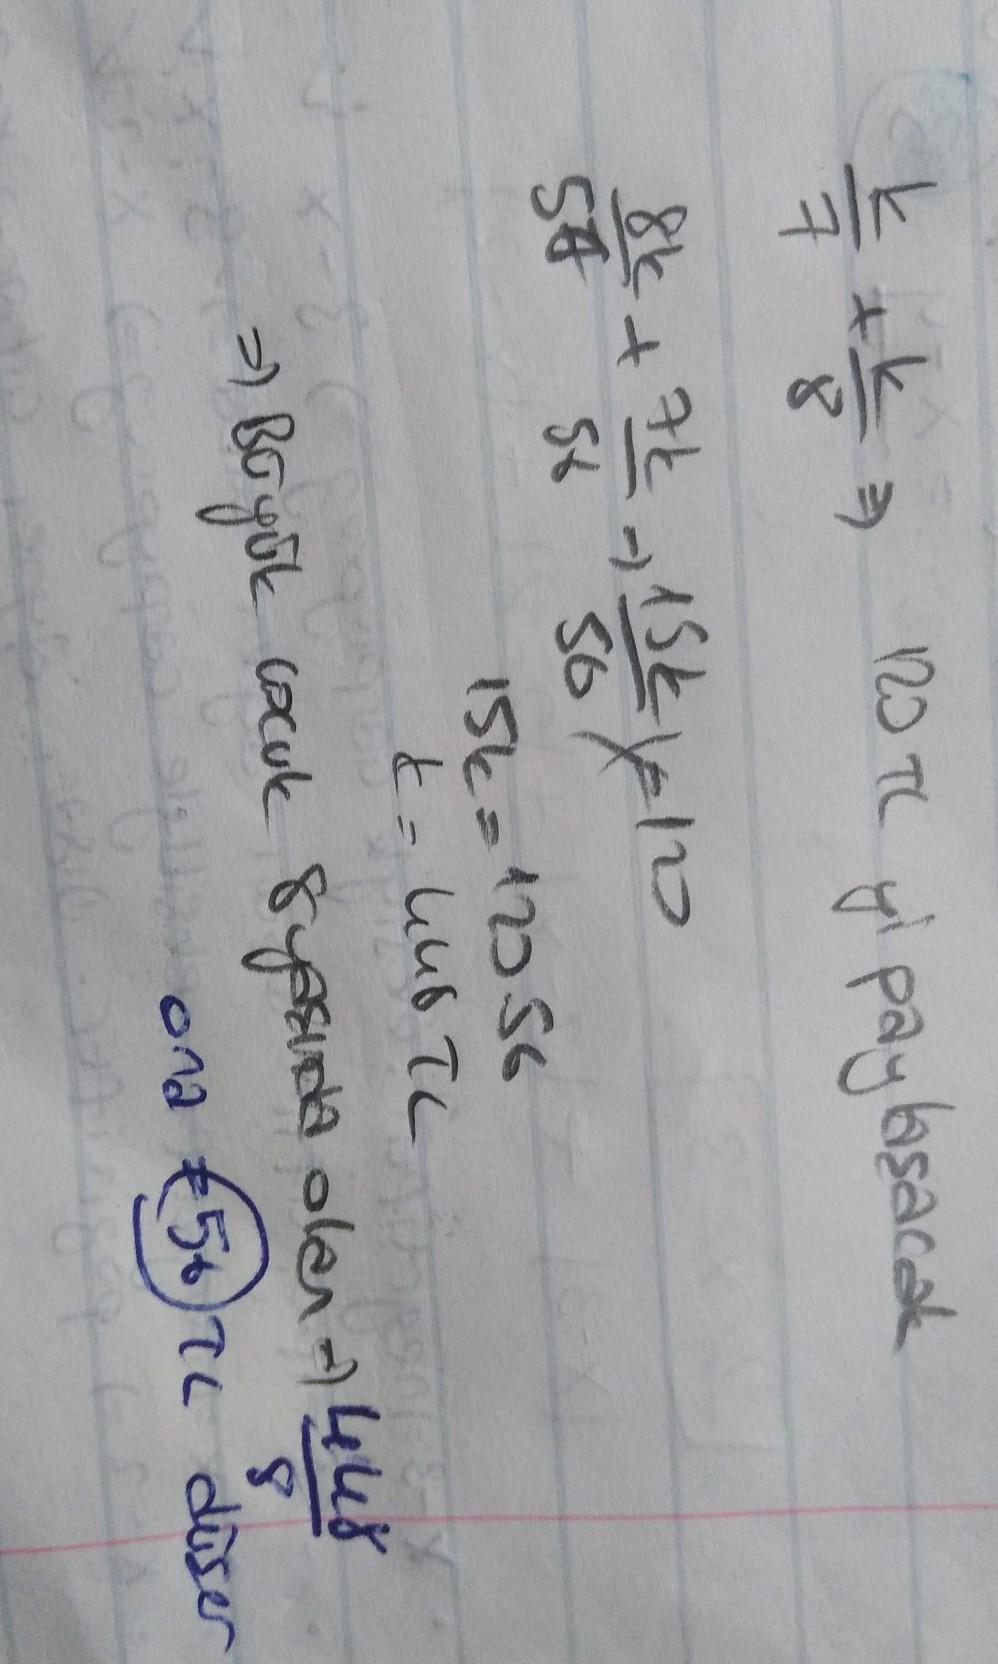 k/7 + k/8 ⇒ 120 TL yi paylaşacak
8k/56 + 7k/56 → 15k/56 = 120
15k = 120 56
k = 448 TL
⇒ Büyük çocuk 8 yaşında olan → 448/8
ona = 56 TL düşer